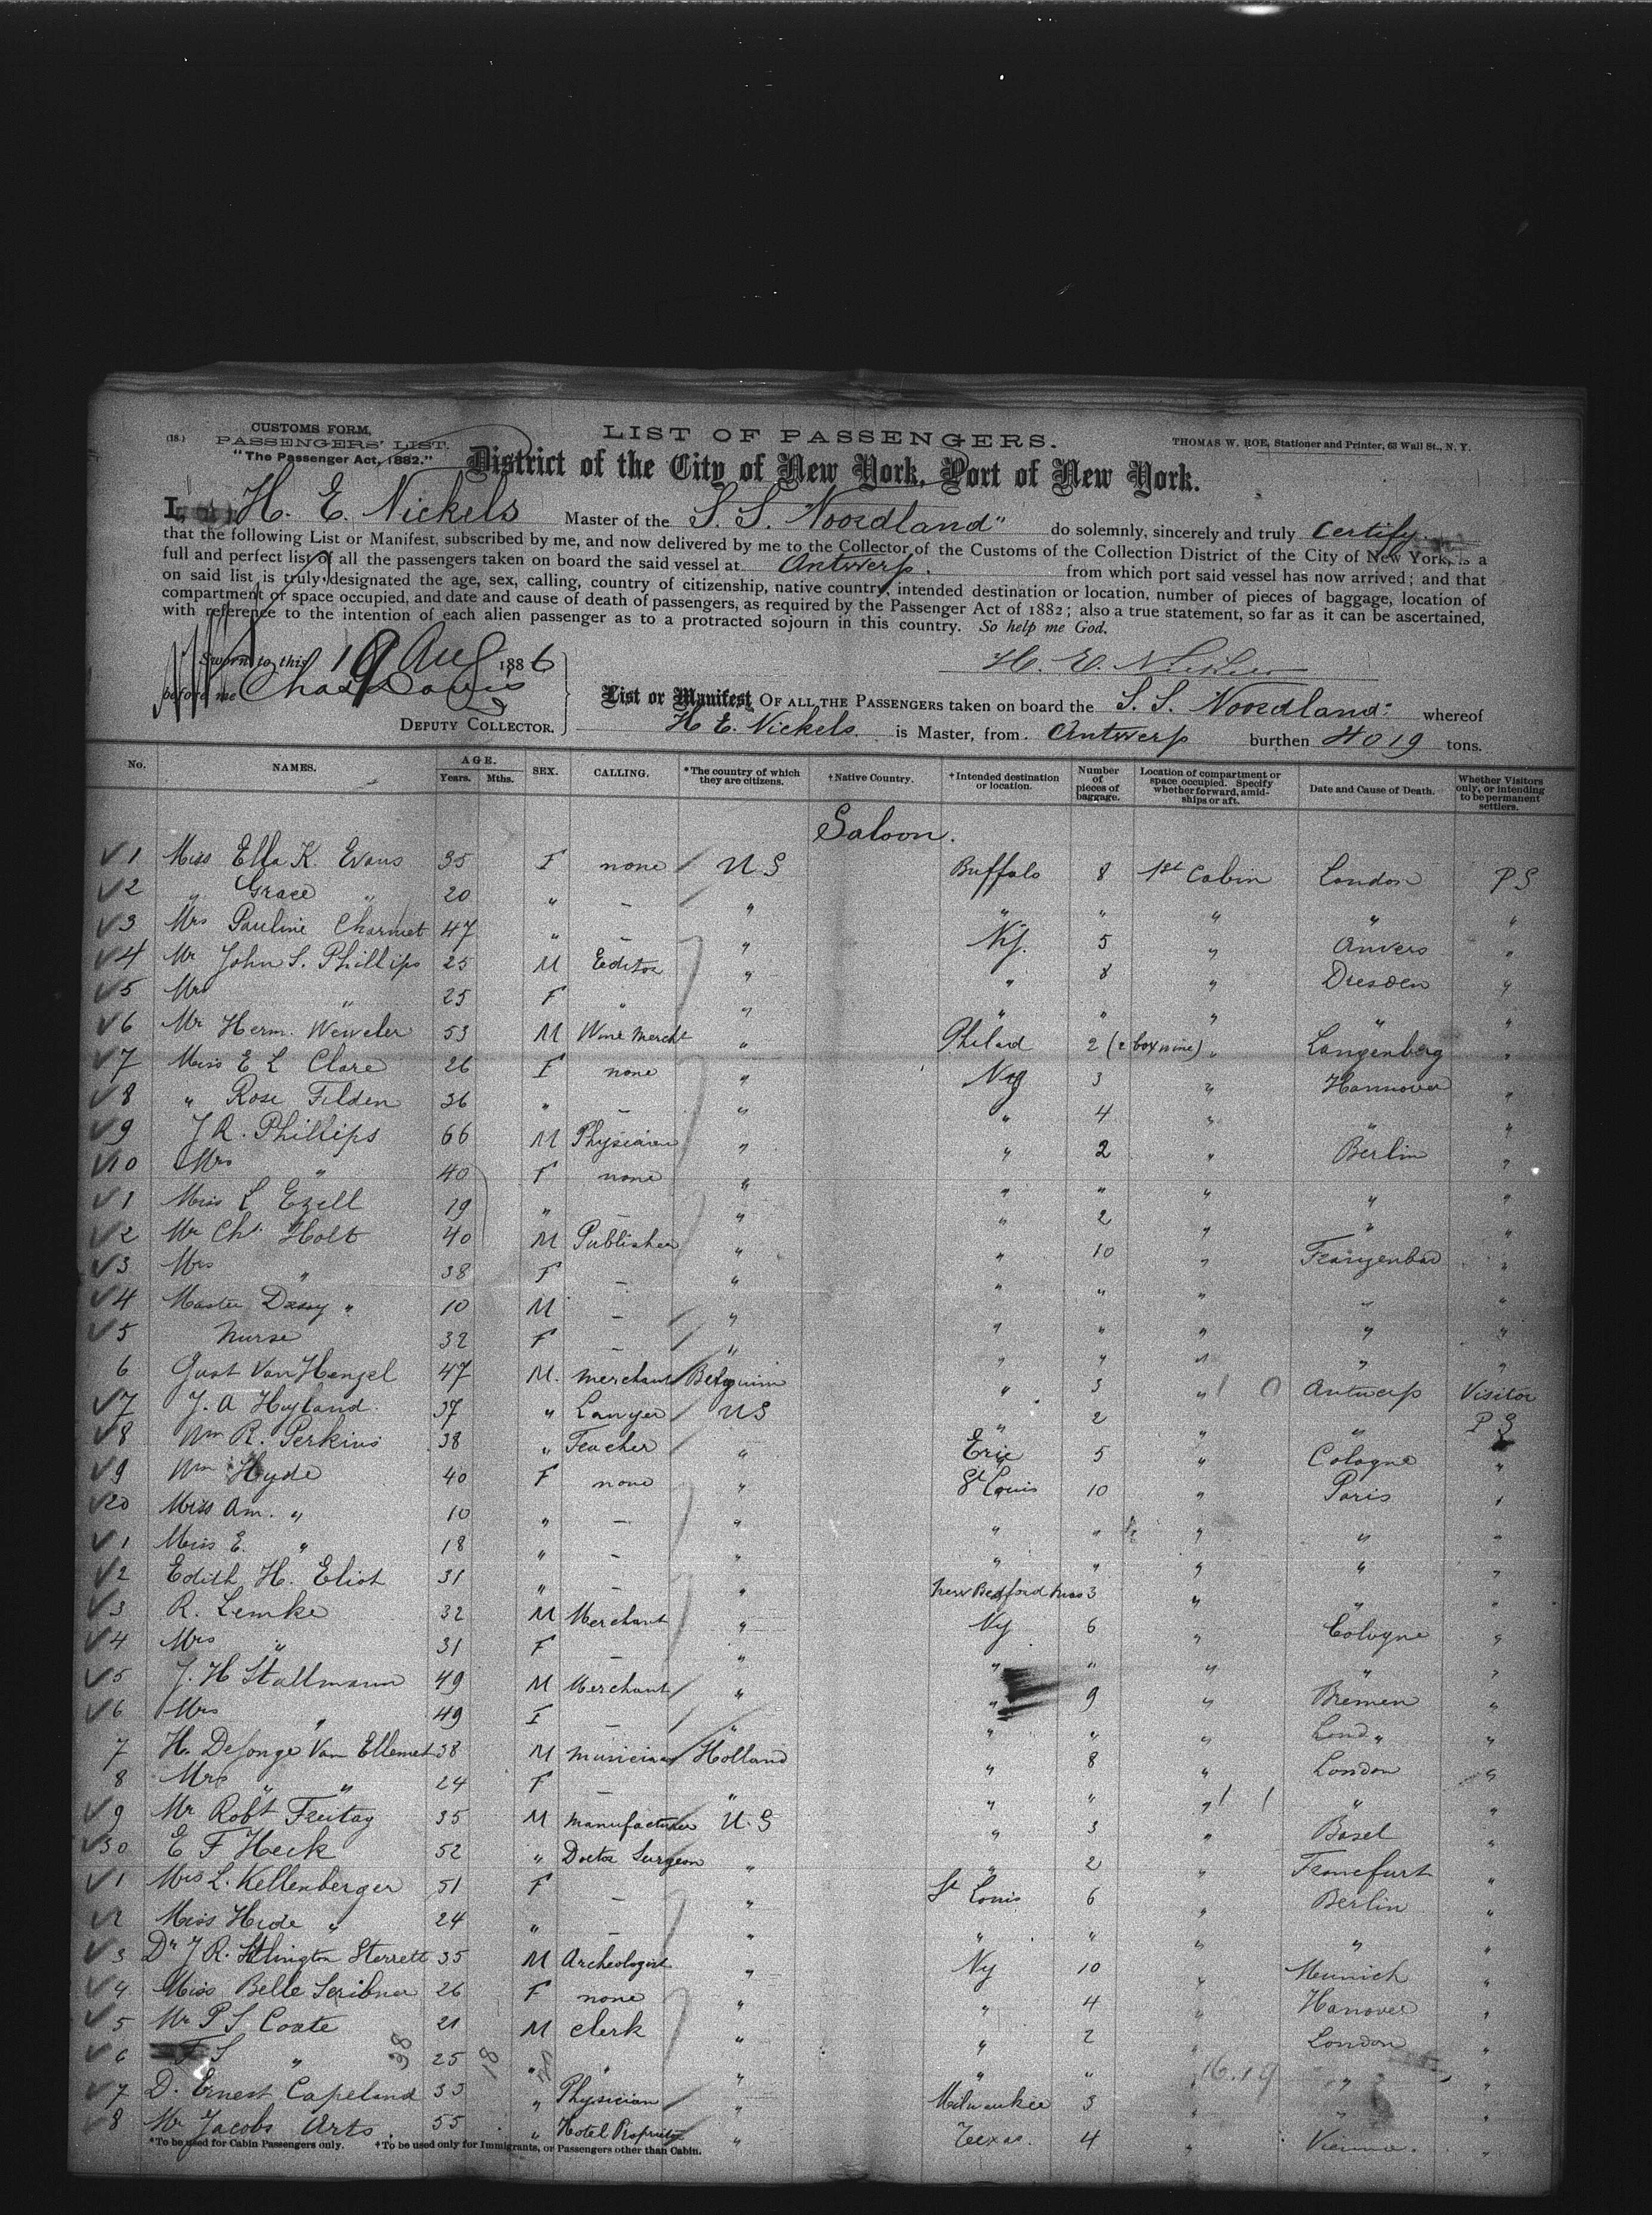 (18.)
CUSTOMS FORM.
PASSENGERS' LIST.
"The Passenger Act, 1882."
LIST OF PASSENGERS.
THOMAS W. ROE, Stationer and Printer, 63 Wall St., N. Y.
District of the City of New York, Port of New York.
I, H. E. Nickels Master of the S. S. "Noordland" do solemnly, sincerely and truly certify
that the following List or Manifest, subscribed by me, and now delivered by me to the Collector of the Customs of the Collection District of the City of New York, is a
full and perfect list of all the passengers taken on board the said vessel at Antwerp. from which port said vessel has now arrived; and that
on said list is truly designated the age, sex, calling, country of citizenship, native country, intended destination or location, number of pieces of baggage, location of
compartment or space occupied, and date and cause of death of passengers, as required by the Passenger Act of 1882; also a true statement, so far as it can be ascertained,
with reference to the intention of each alien passenger as to a protracted sojourn in this country. So help me God.
Sworn to this 19 Aug 1886
before me Chas Davis
DEPUTY COLLECTOR.
H. E. Nickels
List or Manifest OF ALL THE PASSENGERS taken on board the S. S. Noordland whereof
H E. Nickels is Master, from Antwerp burthen 4019 tons.
No. NAMES. AGE. Years. Mths. SEX. CALLING. *The country of which they are citizens. †Native Country. †Intended destination or location. Number of pieces of baggage. Location of compartment or space occupied. Specify whether forward, amidships or aft. Date and Cause of Death. Whether Visitors only, or intending to be permanent settlers.
Saloon.
1 Miss Ella K. Evans 35 F none U S Buffalo 8 1st Cabin London P S
2 " Grace " 20 " – " " " " " "
3 Mrs Pauline Charmet 47 " – " NY. 5 " Anvers "
4 Mr John S. Phillips 25 M Editor " " 8 " Dresden "
5 Mrs " 25 F " " " " " " "
6 Mr Herm. Weweler 53 M Wine Mercht " Philad 2 (2 box wine) " Langenberg "
7 Miss E L Clare 26 F none " Ny 3 " Hannover "
8 " Rose Filden 36 " – " " 4 " " "
9 J R. Phillips 66 M Physician " " 2 " Berlin "
10 Mrs " 40 F none " " " " " "
1 Miss L Ezell 19 " – " " 2 " " "
2 Mr Chs Holt 40 M Publisher " " 10 " Franzenbad "
3 Mrs " 38 F – " " " " " "
4 Master " 10 M – " " " " " "
5 Nurse 32 F – " " " " " "
6 Gust Van Hengel 47 M. merchant Belgium " 3 " Antwerp Visitor
7 J. A Hyland. 37 " Lawyer US " 2 " " P S
8 Wm R. Perkins 38 " Teacher " Erie 5 " Cologne "
9 Wm Hyde 40 F none " St Louis 10 " Paris "
20 Miss Am. " 10 " – " " " " " "
1 Miss E. " 18 " – " " " " " "
2 Edith H. Eliot 31 " – " New Bedford Mas 3 " " "
3 R. Lemke 32 M Merchant " Ny 6 " Cologne "
4 Mrs " 31 F " " " " " "
5 J. H Stallmann 49 M Merchant " " 9 " Bremen "
6 Mrs " 49 F – " " " " Lond " "
7 H. DeJonge Van Ellemet 38 M musician Holland " 8 " London "
8 Mrs " " 24 F – " " " " " "
9 Mr Robt Freitag 35 M manufacturer U. S " 3 " Basel "
30 E F Heck 52 " Doctor Surgeon " " 2 " Francfurt "
1 Mrs L. Kellenberger 51 F – " St Louis 6 " Berlin "
2 Miss " 24 " – " " " " " "
3 Dr J R. Sterrett 35 M Archeologist " Ny 10 " Munich "
4 Miss Belle Scribner 26 F none " " 4 " Hanover "
5 Mr P S Coate 21 M clerk " " 2 " London "
6 S " 25 " " " " " " " "
7 D. Ernest Capeland 33 " Physician " Milwaukee 3 " " "
8 Mr Jacobs Arts. 55 " Hotel Proprietor " Texas. 4 " Vienna. "
38 18
16.19
*To be used for Cabin Passengers only. †To be used only for Immigrants, or Passengers other than Cabin.